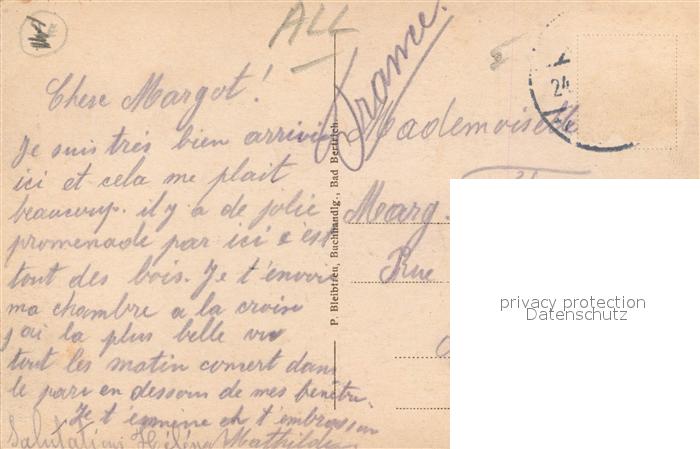 ALL
France.
24
Chere Margot!
Je suis très bien arrivée
ici et cela me plait
beaucoup. il y a de jolie
promenade par ici c'est
tout des bois. Je t'envoi
ma chambre a la croix
j'ai la plus belle vue
tout les matin consert dans
le parc en dessous de mes
Je t' et t'embrasse
Mathilde
Salutations Hélène
P. Bleibtreu, Buchhandlg., Bad Bertrich.
Mademoiselle
Marg.
Rue
privacy protection
Datenschutz